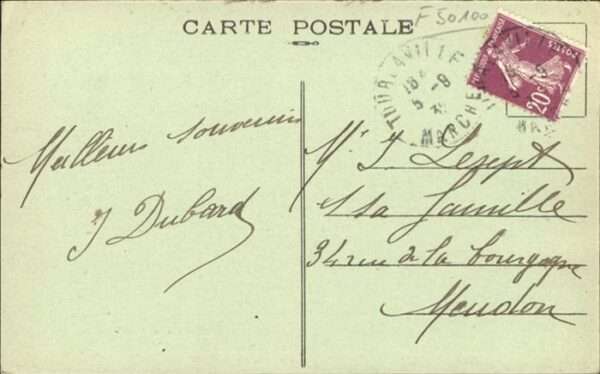 CARTE POSTALE
F 50100
TOURLAVILLE
18
5 -8
MANCHE
POSTES
20c
Meilleurs souvenirs
J Dubard
Mr J.
& sa famille
34 rue de la Bourgogne
Meudon